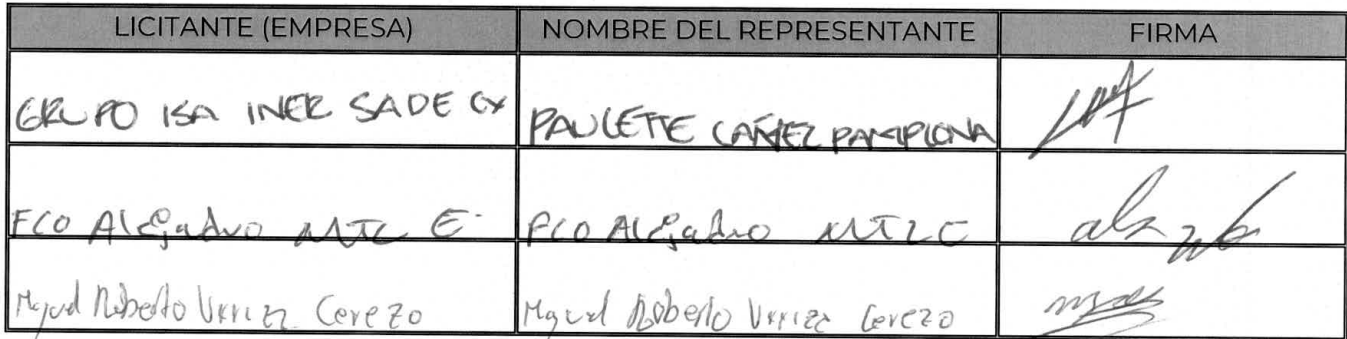 LICITANTE (EMPRESA) NOMBRE DEL REPRESENTANTE FIRMA
GRUPO ISA INER SA DE CV PAULETTE CAÑEZ PAMPLONA
FCO Alejadro MTZ E. FCO Alejadro MTZ E
Miguel Roberto Cerezo Miguel Roberto Cerezo